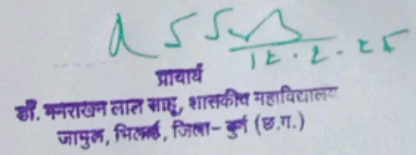 12.2.25
प्राचार्य
डॉ. मनराखन लाल साहू, शासकीय महाविद्यालय
जामुल, भिलाई, जिला- दुर्ग (छ.ग.)